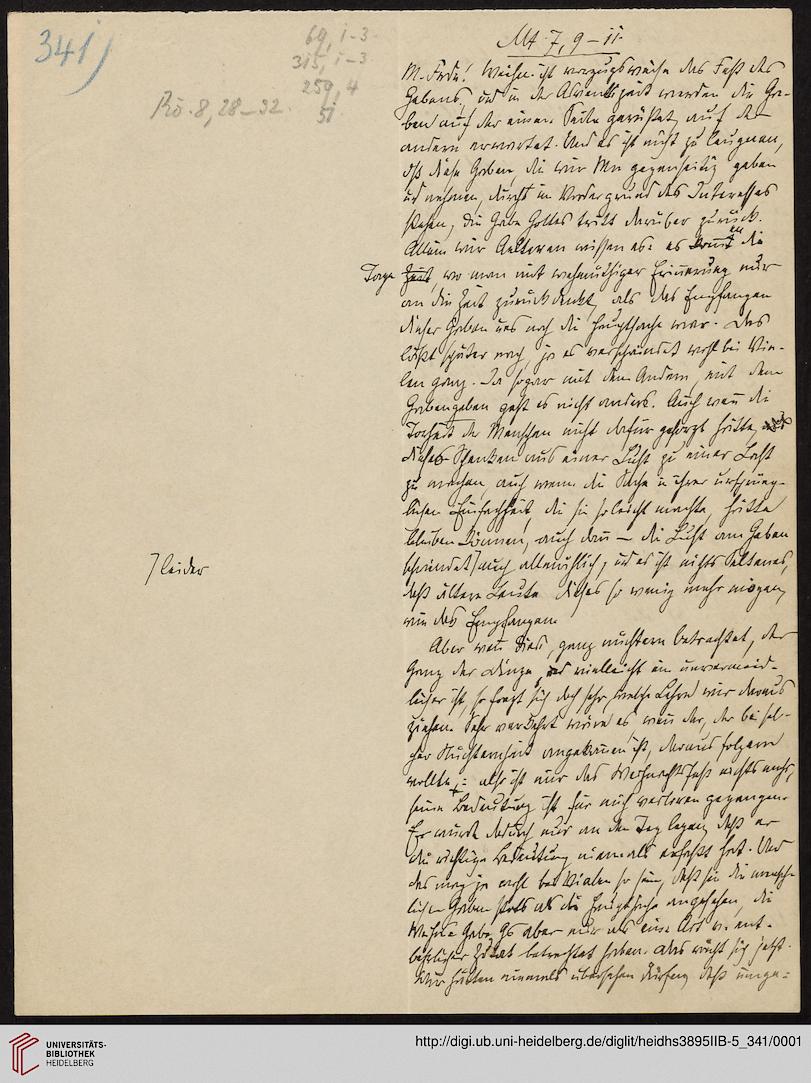 341)
69, 1-3
315, 1-3
259, 4
51
Rö. 8, 28-32.
Mt 7, 9-11.
M. Frde! Weihn. ist vorzugsweise das Fest des
Gebens, und in der Adventszeit werden die Ga-
ben auf der einen Seite gerüstet, auf der
andern erwartet. Und es ist nicht zu leugnen,
daß diese Gaben, die wir Mn gegenseitig geben
und nehmen, durchs im Vordergrund des Interesses
stehen, die Gabe Gottes tritt darüber zurück.
Allein wir Aelteren wissen es: es kommen die
Tage Zeit, wo man mit wehmuthiger Erinnerung nur
an die Zeit zurückdenkt, als das Empfangen
dieser Gaben uns noch die Hauptsache war. Das
läßt später nach, ja es verschwindet wohl bei Vie-
len ganz. Ja sogar mit dem Andern, mit dem
Gabengeben geht es nicht anders. Auch wenn die
Torheit der Menschen nicht dafür gesorgt hätte,
dieses Schenken aus einer Lust zu einer Last
zu machen, auch wenn die Sache in ihrer ursprüng-
lichen Einfachheit, die sie so leicht machte, hätte
bleiben können, auch dann — die Lust am Geben
schwindet auch allmählich, und es ist nichts Seltenes,
daß ältere Leute dieses so wenig mehr mögen,
wie das Empfangen.
leider
Aber wenn dies, ganz nüchtern betrachtet, der
Gang der Dinge, und vielleicht ein unvermeid-
licher ist, so fragt sich doch sehr, welche Lehre wir daraus
ziehen. Sehr verkehrt wäre es, wenn der, der bei sol-
cher Nüchternheit angekommen ist, daraus folgern
wollte: also ist mir das Weihnachtsfest nichts mehr,
seine Bedeutung ist für mich verloren gegangen.
Er würde dadurch nur an den Tag legen, daß er
die richtige Bedeutung niemals erfaßt hat. Und
das mag ja wohl bei Vielen so sein, daß sie die mensch-
lichen Gaben stets als die Hauptsache angesehen, die
Gabe Gs aber nur als eine Art v. ent-
behrlicher Zutat betrachtet haben. Das rächt sich jetzt.
Wir hätten niemals übersehen dürfen, daß umge=
UNIVERSITÄTS-
BIBLIOTHEK
HEIDELBERG
http://digi.ub.uni-heidelberg.de/diglit/heidhs3895IIB-5_341/0001